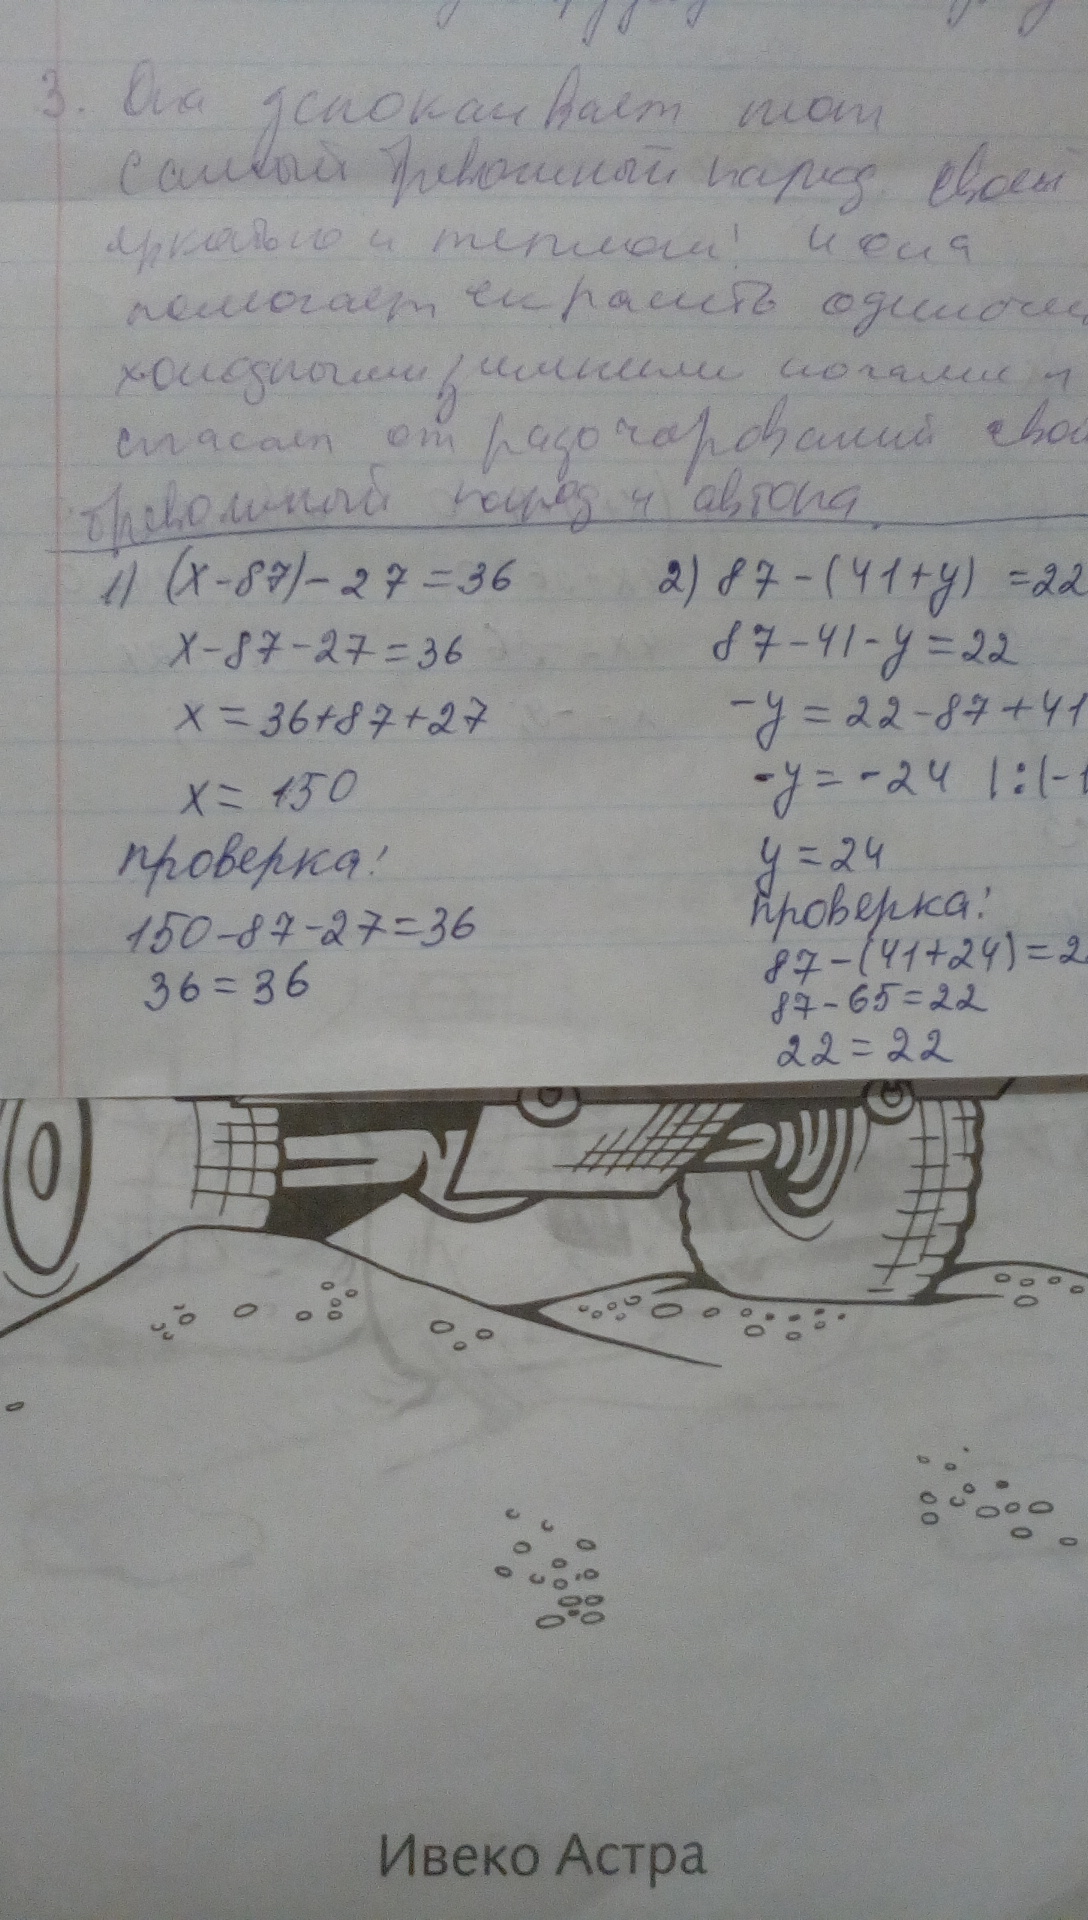 3. Она успокаивает тот
самый тревожный народ своей
яркостью и теплом! и она
помогает скрасить
холодными зимними ночами и
спасает от разочарований свой
тревожный народ и автора.
1) (x-87)-27=36
x-87-27=36
x=36+87+27
x=150
проверка:
150-87-27=36
36=36
2) 87-(41+y) =22
87-41-y=22
-y=22-87+41
-y=-24 |:(-1
y=24
проверка:
87-(41+24)=2
87-65=22
22=22
Ивеко Астра